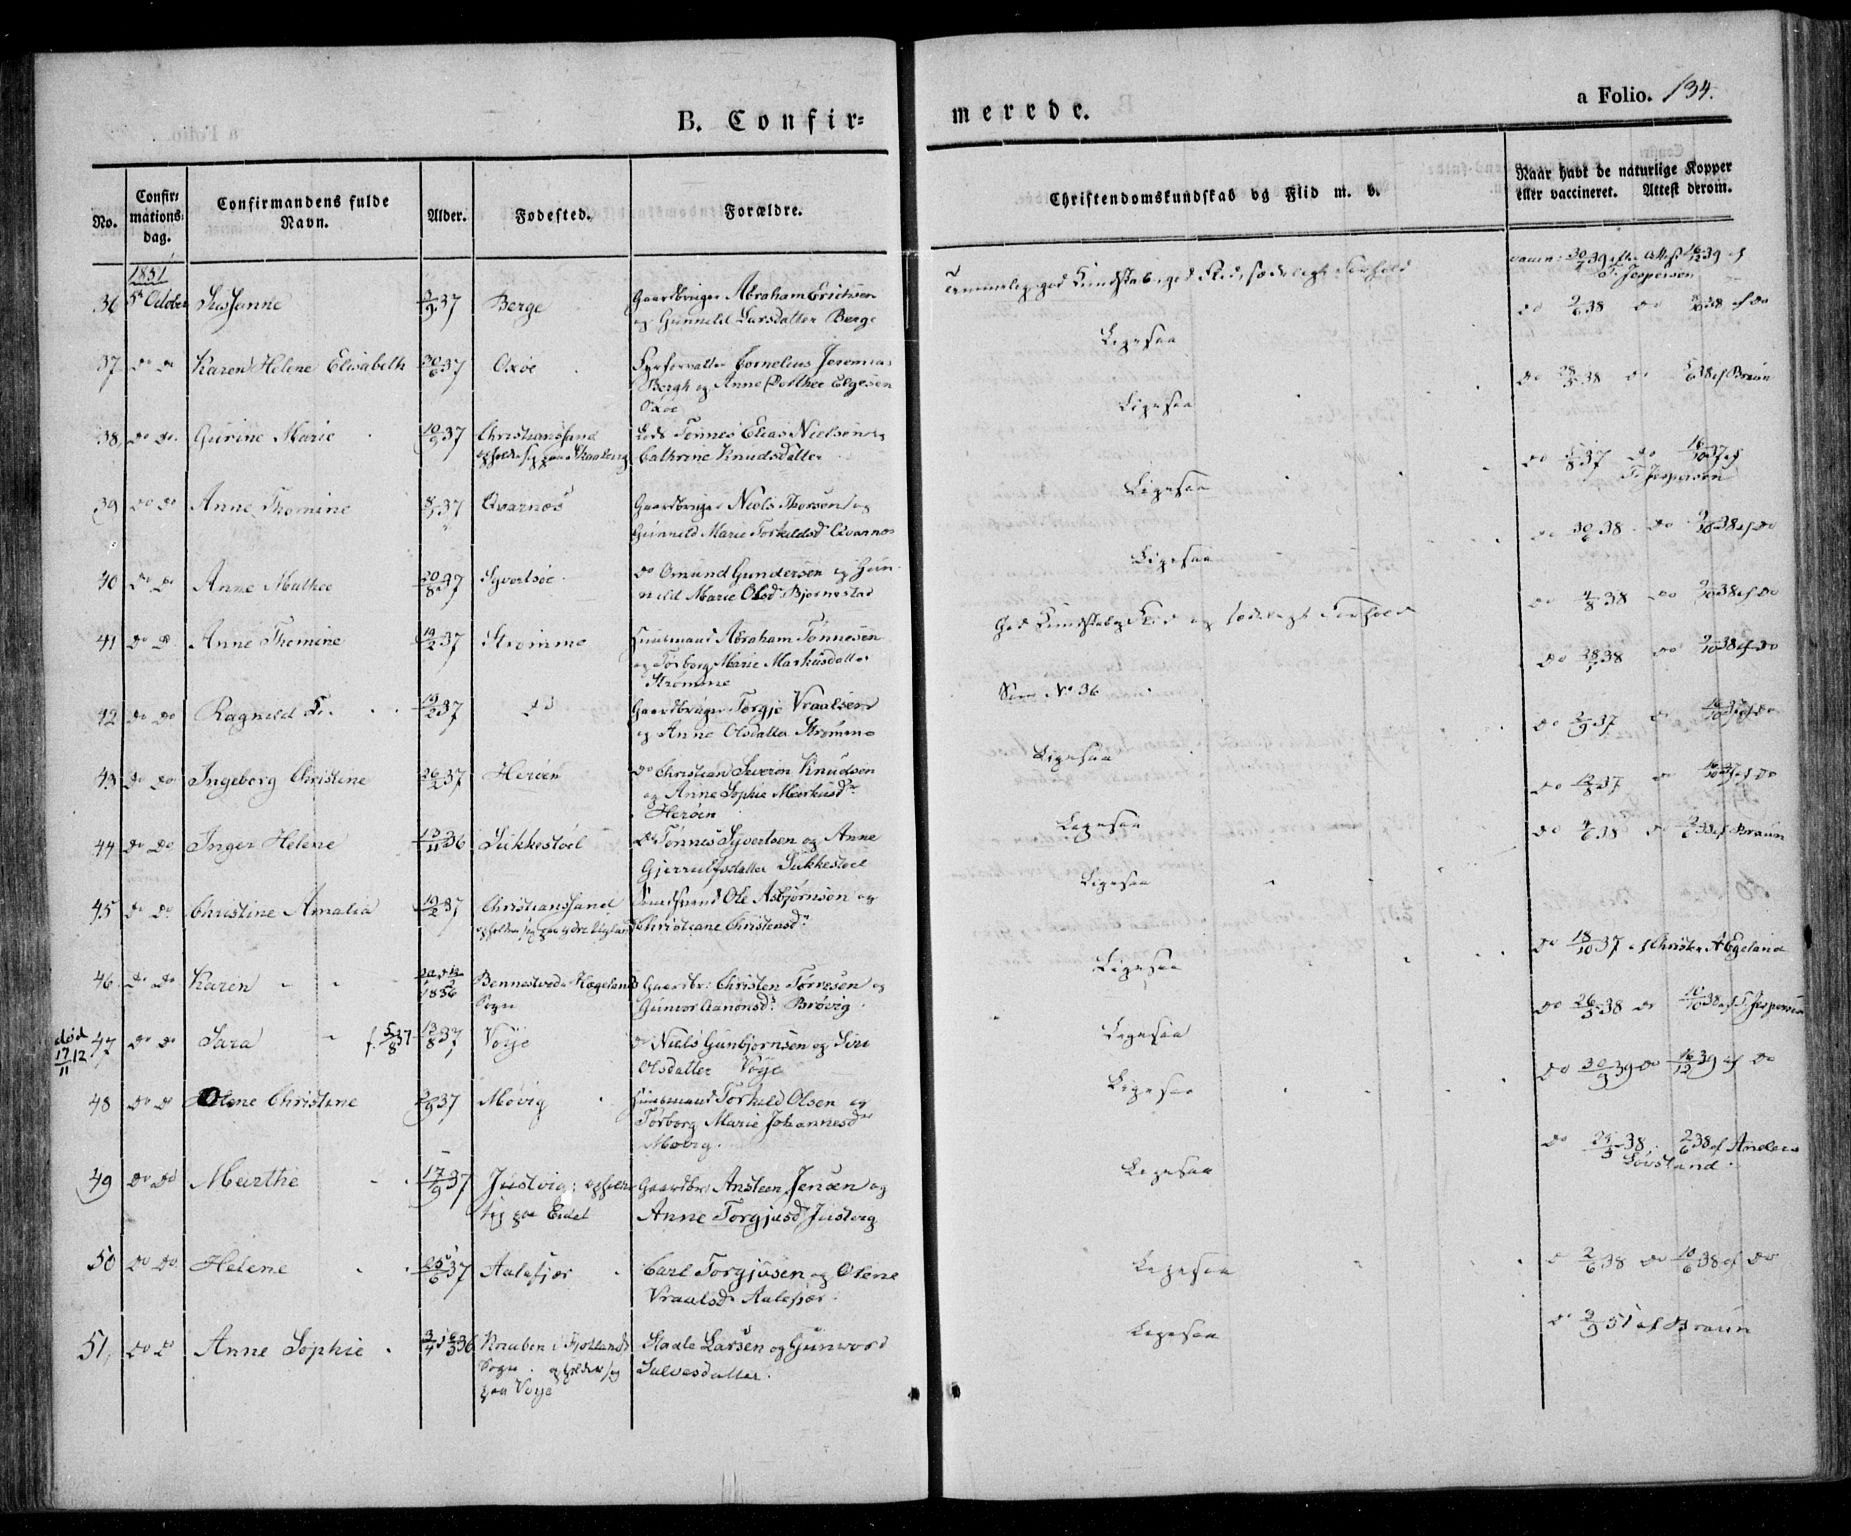 B. Confir=
merede.
a Folio. 134.
No.
Confir=
mations=
dag.
Confirmandens fulde
Navn.
Alder.
Fødested.
Forældre.
Christendomskundskab og Flid m. v.
Naar havt de naturlige Kopper
eller vaccineret. Attest derom.
1851
36 5te October Susanne 3/9 37 Berge Gaardbruger Abraham Erichsen
og Gunneld Larsdatter Berge
Temmelig god Kundskab, god Flid, sædeligt Forhold
vaccin: 30/9 39 efter Attest 16/12 39 af
T. Jespersen
37 do do Karen Helene Elisabeth 20/6 37 Oxøe Fyrforvalter Cornelius Jeremias
Bergh og Anne Dorthee Elgesen
Oxøe
Ligesaa
do 2/6 38 do 2/6 38 af do
38 do do. Gurine Marie 10/9 37 Christianssand
opholder sig paa
Lods Tønnes Elias Nielsen og
Cathrine Knudsdatter
Ligesaa
do 28/5 38 do 5/6 38 af Braun
39 do do Anne Thomine 37 Qvarnæs Gaardbruger Niels Thorsen og
Gunneld Marie Torkildsd Qvarnæs
Ligesaa
do 5/8 37 do 16/10 37 af
T. Jespersen
40 do do Anne Mathee 20/8 37 Syvertsøe do Omund Gundersen og Gun
neld Marie Olsd Bjørnestad
Ligesaa
do 30/6 38 do 2/10 38 af do
41 do do Anne Thomine 19/2 37 Strømme Huusmand Abraham Tønnesen
og Torborg Marie Markusdatter
Strømme
God Kundskab og Flid og sædeligt Forhold
do 4/8 38 do 2/10 38 af do
42 do do Ragnild 13/2 37 do Gaardbruger Torgje Vraalsen
og Anne Olsdatter Strømme
Som No 36
do 38 do 2/10 38 af do
43 do do Ingeborg Christine 26/2 37 Herøen do Christian Severin Knudsen
og Anne Sophie Markusdr
Herøen
Ligesaa
do 2/9 37 do 16/10 37 af do
44 do do Inger Helene 13/11 36 Sukkestøel do Tønnes Syvertsen og Anne
Gjerrulfsdatter Sukkestøel
Ligesaa
do 12/8 37 do 16/10 37 af do
45 do do Christine Amalia 19/2 37 Christianssand
opholder sig paa
Ole Asbjørnsen og
Christiane Christensdr
Ligesaa
do 4/6 38 do 2/6 38 af Braun
46 do do Karen 1836 Bennestvedt Høgelands
Sogn
Gaardbr: Christen Torresen og
Gunvor Aanonsdr Brøvig
Ligesaa
do 18/10 37 af Christen A Egeland
død
17/11 12
47 do do Sara f. 5/8 37 13/8 37 Vøije do Niels Gunbjørnsen og Siri
Olsdatter Vøije
Ligesaa
do 26/5 38 do 10/10 38 af T. Jespersen
48 do do Olene Christine 2/9 37 Møvig Huusmand Torkild Olsen og
Torborg Marie Johannesdr
Møvig.
Ligesaa
do 30/9 39 do 16/12 39 af do
49 do do Marthe 17/9 37 Justvig; opholder
sig paa Eidet
Gaardbr: Ansteen Jensen og
Anne Torgjusdr Justvig
Ligesaa
do 38. 2/6 38 af Anders
Løvsland.
50 do do. Helene 25/6 37 Aalefjær Carl Torgjusen og Olene
Vraalsdr Aalefjær.
Ligesaa
do 2/6 38 do 10/6 38 af do
51. do do Anne Sophie 36 Knaben i Fjotlands
Sogn. opholder sig
paa Vøije
Staale Larsen og Gunvord
Salvesdatter.
Ligesaa
do 2/9 51 af Braun